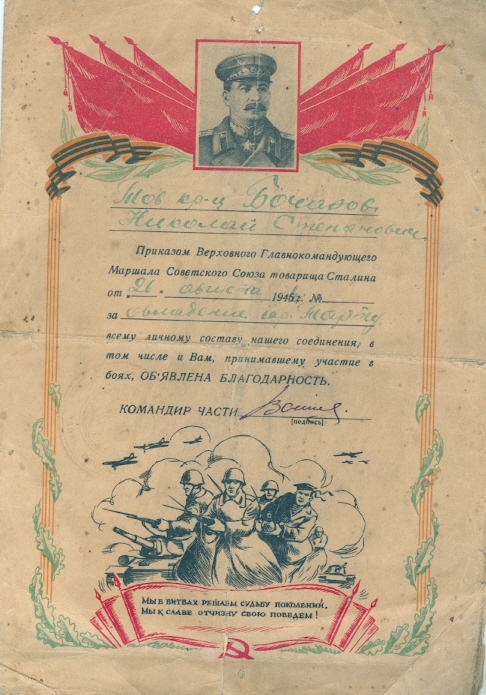 Тов. кр-ц Бочаров
Николай Степанович
Приказом Верховного Главнокомандующего
Маршала Советского Союза товарища Сталина
от 26. августа 1945г. №
за овладение гор. Тарту
всему личному составу нашего соединения, в
том числе и Вам, принимавшему участие в
боях, ОБ'ЯВЛЕНА БЛАГОДАРНОСТЬ.
КОМАНДИР ЧАСТИ
(подпись)
МЫ В БИТВАХ РЕШАЕМ СУДЬБУ ПОКОЛЕНИЙ,
МЫ К СЛАВЕ ОТЧИЗНУ СВОЮ ПОВЕДЕМ!